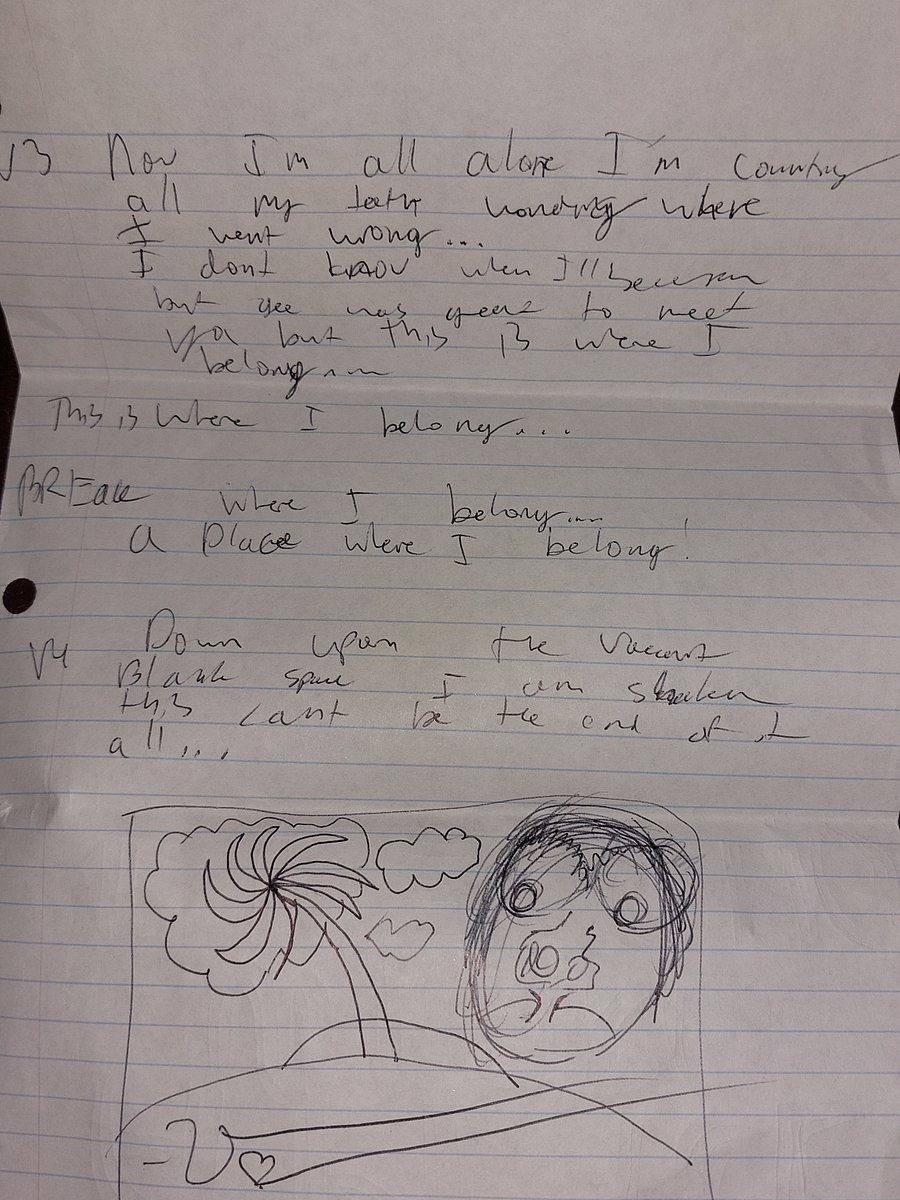 V3 Now I'm all alone I'm counting
all my teeth wondring where
I went wrong...
I dont know when I'll
but was to meet
ya but this is were I
belong....
This is Where I belong....
BREak Where I belong....
a Place where I belong!
V4 Down upon the vacant
Blank space I am shaken
this cant be the end of it
all...